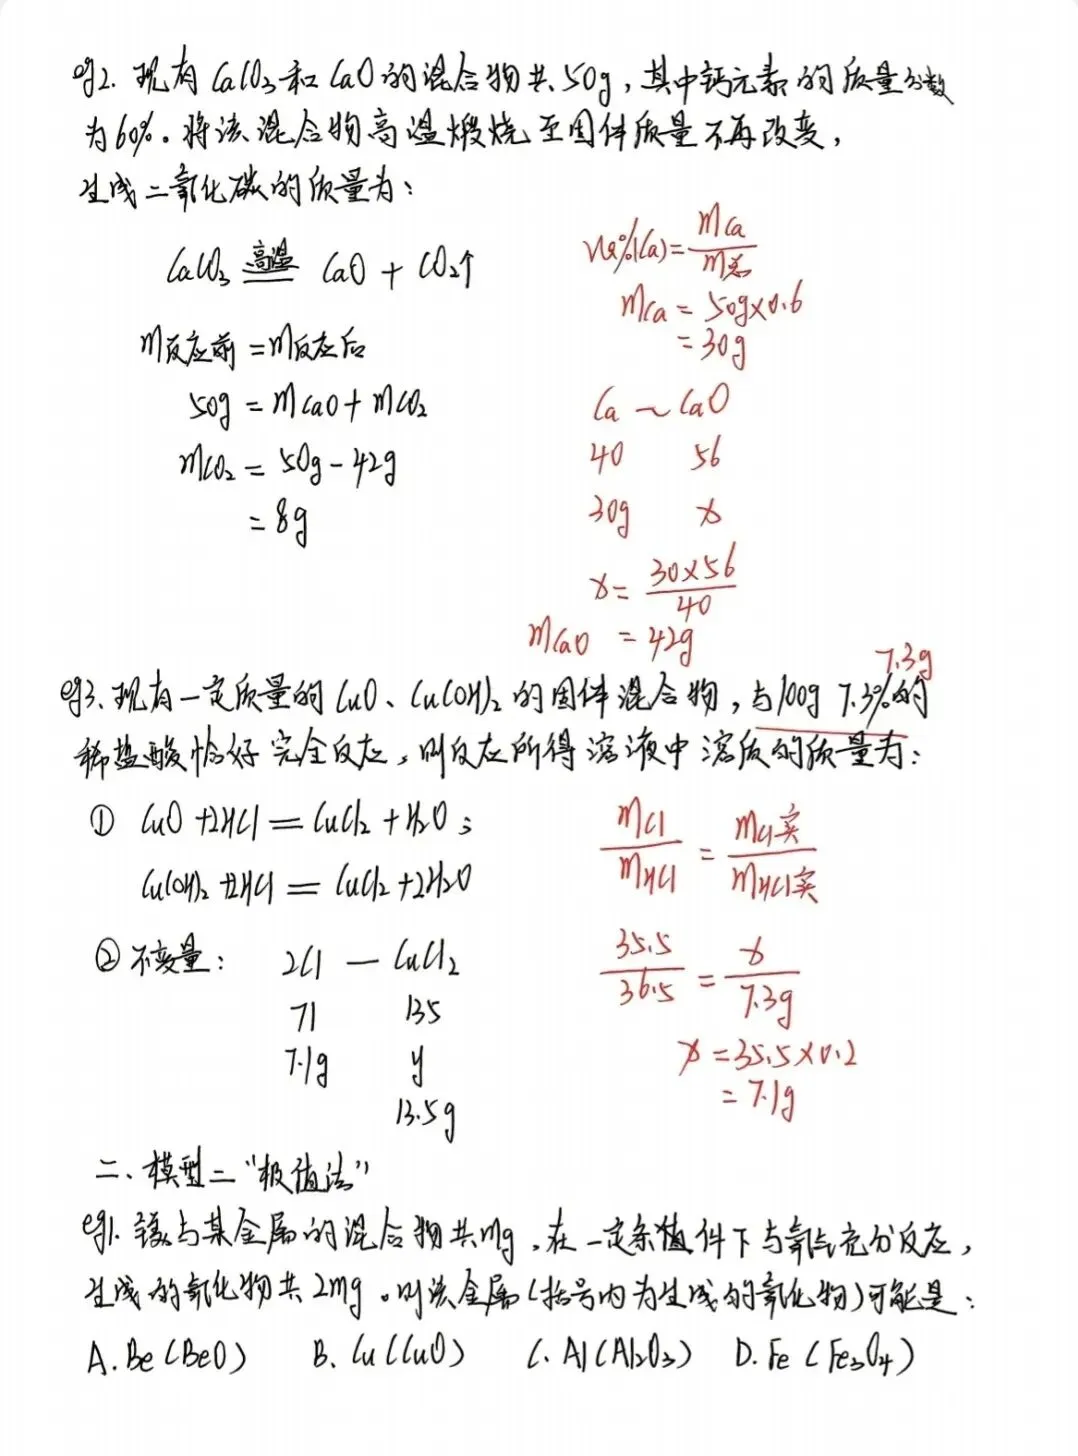 eg2. 现有CaCO3和CaO的混合物共50g,其中钙元素的质量分数
为60%。将该混合物高温煅烧至固体质量不再改变,
生成二氧化碳的质量为:
CaCO3 高温 CaO + CO2↑
m反应前 = m反应后
50g = mCaO + mCO2
mCO2 = 50g - 42g
= 8g
Ca) = mCa / m总
mCa = 50g×0.6
= 30g
Ca ~ CaO
40 56
30g x
x = 30×56 / 40
mCaO = 42g
7.3g
eg3. 现有一定质量的CuO、Cu(OH)2的固体混合物,与100g 7.3%的
稀盐酸恰好完全反应,则反应所得溶液中溶质的质量为:
① CuO + 2HCl = CuCl2 + H2O;
Cu(OH)2 + 2HCl = CuCl2 + 2H2O
② 不变量: 2Cl — CuCl2
71 135
7.1g y
13.5g
mCl / mHCl = mCl实 / mHCl实
35.5 / 36.5 = x / 7.3g
x = 35.5×0.2
= 7.1g
二、模型二“极值法”
eg1. 镁与某金属的混合物共mg,在一定条件下与氧气充分反应,
生成的氧化物共2mg。则该金属(括号内为生成的氧化物)可能是:
A. Be (BeO) B. Cu (CuO) C. Al (Al2O3) D. Fe (Fe3O4)